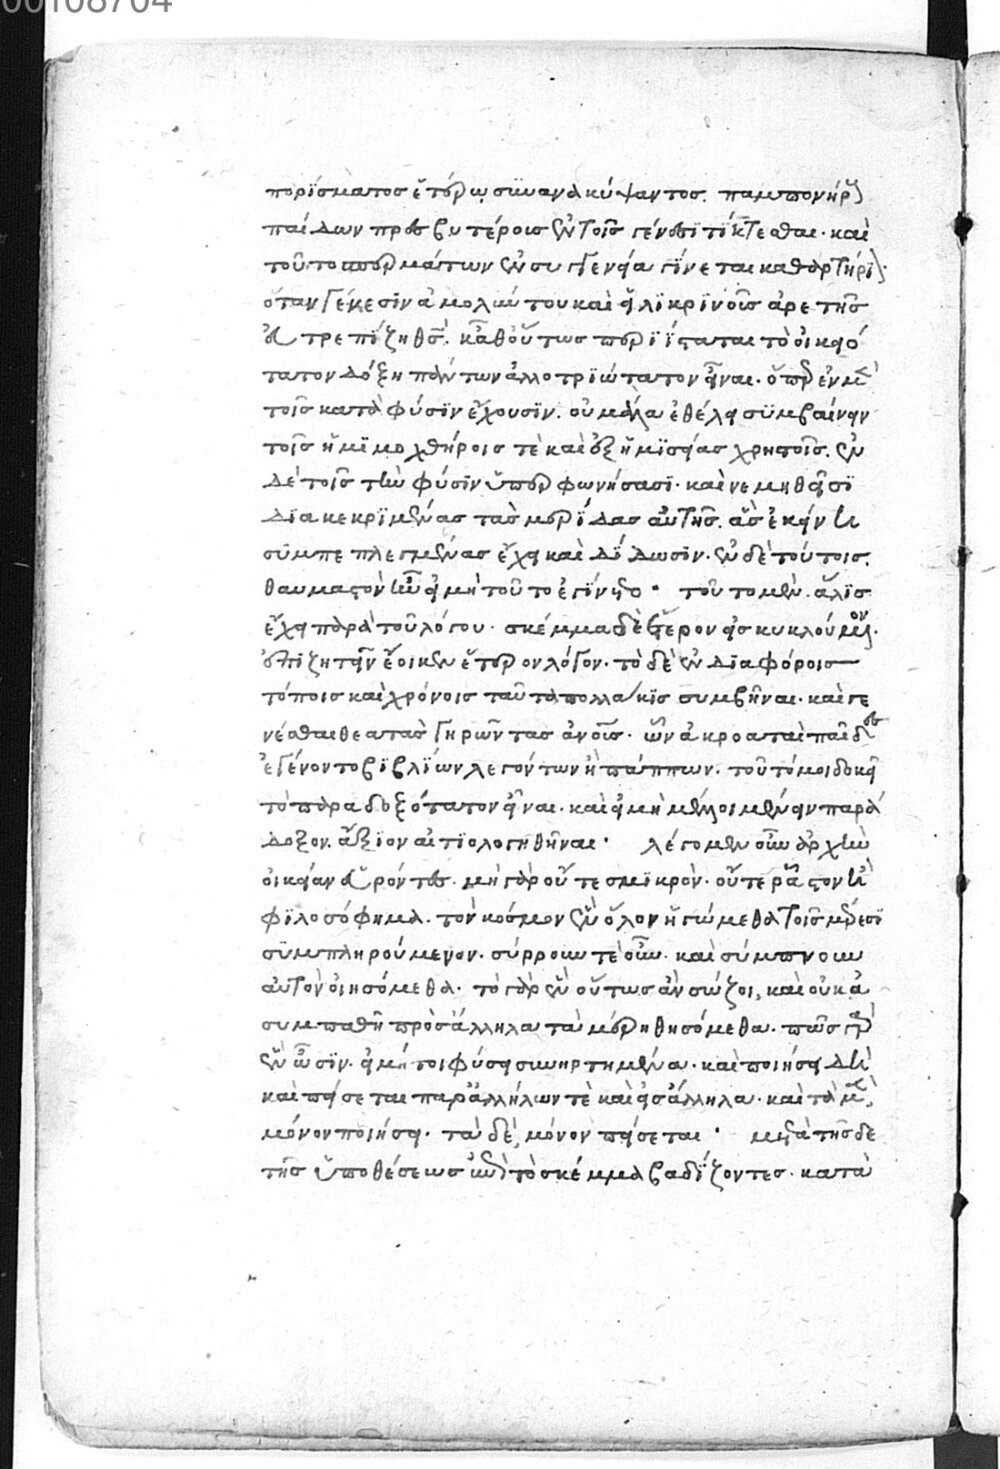 00108704
πορίσματος ἑτέρω συνανακύψαντος. παμπονήρων
παίδων πρεσβυτέροις ἐν τοῖς γένεσι τίκτεσθαι. καὶ
τοῦτο σπερμάτων ἐν συγγενεία γίνεται καθαρτήριον.
ὅταν γένεσιν ἀμολύντου καὶ εἰλικρινοῖς ἀρετῆς
εὐτρεπίζη θεός. κᾆθ οὕτως περιίσταται τὸ οἰκειό
τατον δόξη πάντων ἀλλοτριώτατον εἶναι. ὅπερ ἐν μὲν
τοῖς κατὰ φύσιν ἔχουσιν. οὐ μάλα ἐθέλει συμβαίνειν
τοῖς ἡμιμοχθήροις τὲ καὶ ἐξ ἡμισείας χρηστοῖς. ἐν
δὲ τοῖς τὴν φύσιν ὑπερφωνήσασι. καὶ νεμηθεῖσι
διακεκριμένας τὰς μερίδας αὐτῆς. ἃς ἐκείνη
συμπεπλεγμένας ἔχει καὶ δίδωσιν. ἐν δὲ τούτοις.
θαυμαστὸν ἦν εἰ μὴ τοῦτο ἐγίνετο. τοῦτο μὲν. ἅλις
ἔχει παρὰ τοῦ λόγου. σκέμμα δὲ ἕτερον εἰσκυκλούμενον.
ἐπιζητεῖν ἔοικεν ἕτερον λόγον. τὸ δὲ ἐν διαφόροις
τόποις καὶ χρόνοις ταῦτα πολλάκις συμβῆναι. καὶ γε
νέσθαι θεατὰς γηρῶντας ἀνθρώποις. ὧν ἀκροαταὶ παῖδες
ἐγένοντο βιβλίων λεγόντων ἢ πάππων. τοῦτό μοι δοκεῖ
τὸ παραδοξότατον εἶναι. καὶ εἰ μὴ μέλλοι μένειν παρά
δοξον. ἄξιον αἰτιολογηθῆναι. λέγομεν οὖν ἀρχὴν
οἰκείαν εὑρόντες. μὴ γὰρ οὔτε σμικρὸν. οὔτε ρᾷστον ἦ
φιλοσόφημα. τὸν κόσμον ἓν ὅλον ἡγώμεθα τοῖς μέρεσι
συμπληρούμενον. σύρρουν τὲ οὖν. καὶ σύμπνουν
αὐτὸν οἰησόμεθα. τὸ γὰρ ἓν οὕτως ἂν σώζοι, καὶ οὐκ ἀ
συμπαθῆ πρὸς ἄλληλα τὰ μέρη θησόμεθα. πῶς γὰρ
ἓν ὦσιν. εἰ μή τοι φύσει συνηρτημένα. καὶ ποιήσει δὴ
καὶ πείσεται παρ' ἀλλήλων τὲ καὶ εἰς ἄλληλα. καὶ τὰ μὲν,
μόνον ποιήσει. τὰ δὲ, μόνον πείσεται. μετὰ τῆσδε
τῆς ὑποθέσεως ἐπὶ τὸ σκέμμα βαδίζοντες. κατὰ